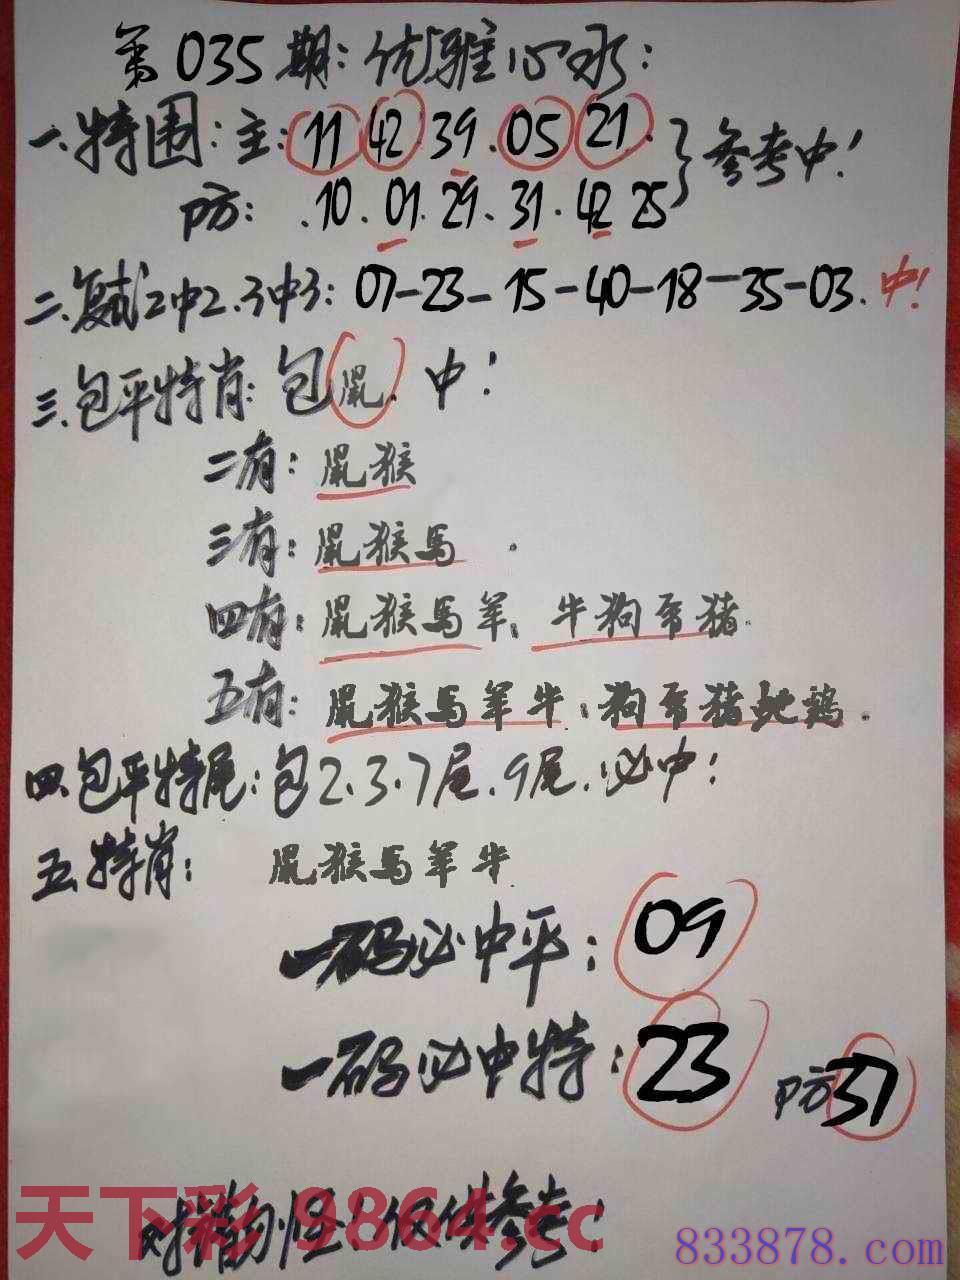 第035期:优雅心水:
一.特围:主:11 42 39.05 21. }参考中!
防:.10.01.29.31.42 25
二.复式2中2.3中3:07-23-15-40-18-35-03.中!
三.包平特肖:包鼠.中!
二有:鼠猴
三有:鼠猴马.
四有:鼠猴马羊;牛狗兔猪.
五有:鼠猴马羊牛;狗兔猪蛇鸡.
四.包平特尾:包2.3.7尾.9尾.必中!
五.特肖:鼠猴马羊牛.
一码必中平:09
一码必中特:23 防37
天下彩 9864.cc
仅供参考!
833878.com